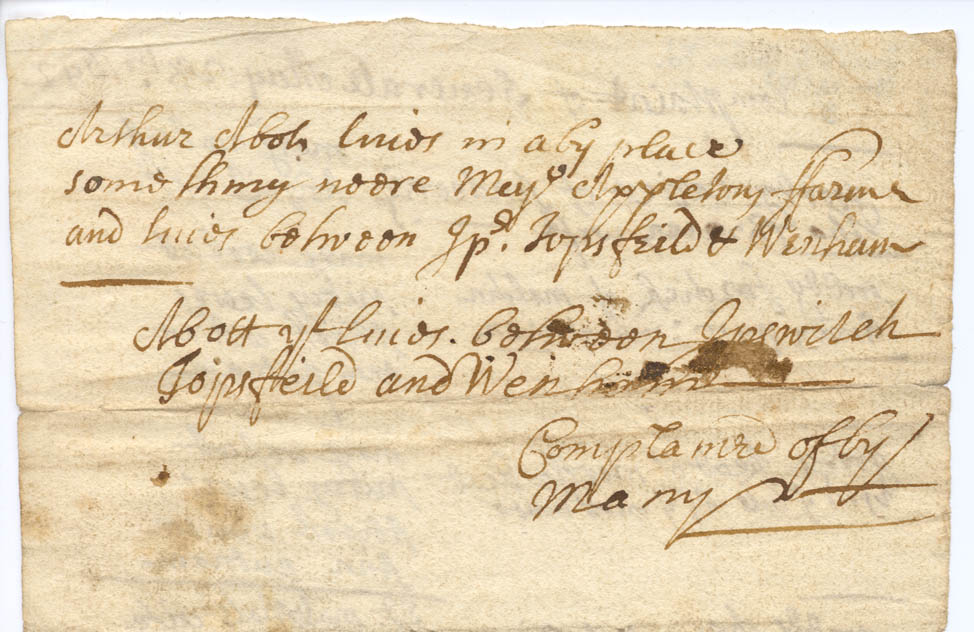 Arthur Abott liues in a by place
some thing neere Mayo Appletons ffarme
and liues between Ipd. Topsfeild & Wenham
Abott yt liues. between Ipswitch
Topsfeild and Wenham
Complained of by
Many